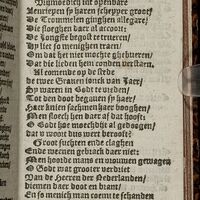 Blijmoedich tot openbare
Menrieyen sy haren schepper groot
De Trommelen ginghen allegare/
Die sloeghen daer al accoort;
De Jongste begost te rueren/
Hy liet so menighen traen/
Om dat het niet mochte ghebueren/
Dat die lieden hem conden verstaen.
Al comende op de stede
de twee Graven ionck van Jaer/
Sy waren in Godt te vreden/
Tot den doot begaven sy haer/
Haer knien saechmen haer booghen/
Men sloech hen daer af dat hooft:
O Godt hoe mocht dijt al gedoogen/
dat v wort dus wert berooft?
Groot suchten ende claghen
Ende weenen gebrack daer niet:
Men hoorde mans en vrouwen gewagen
O Godt wat grooter verdriet
Van de Heeren der Nederlanden/
diemen daer doot en brant/
En so menich man coemt te schanden